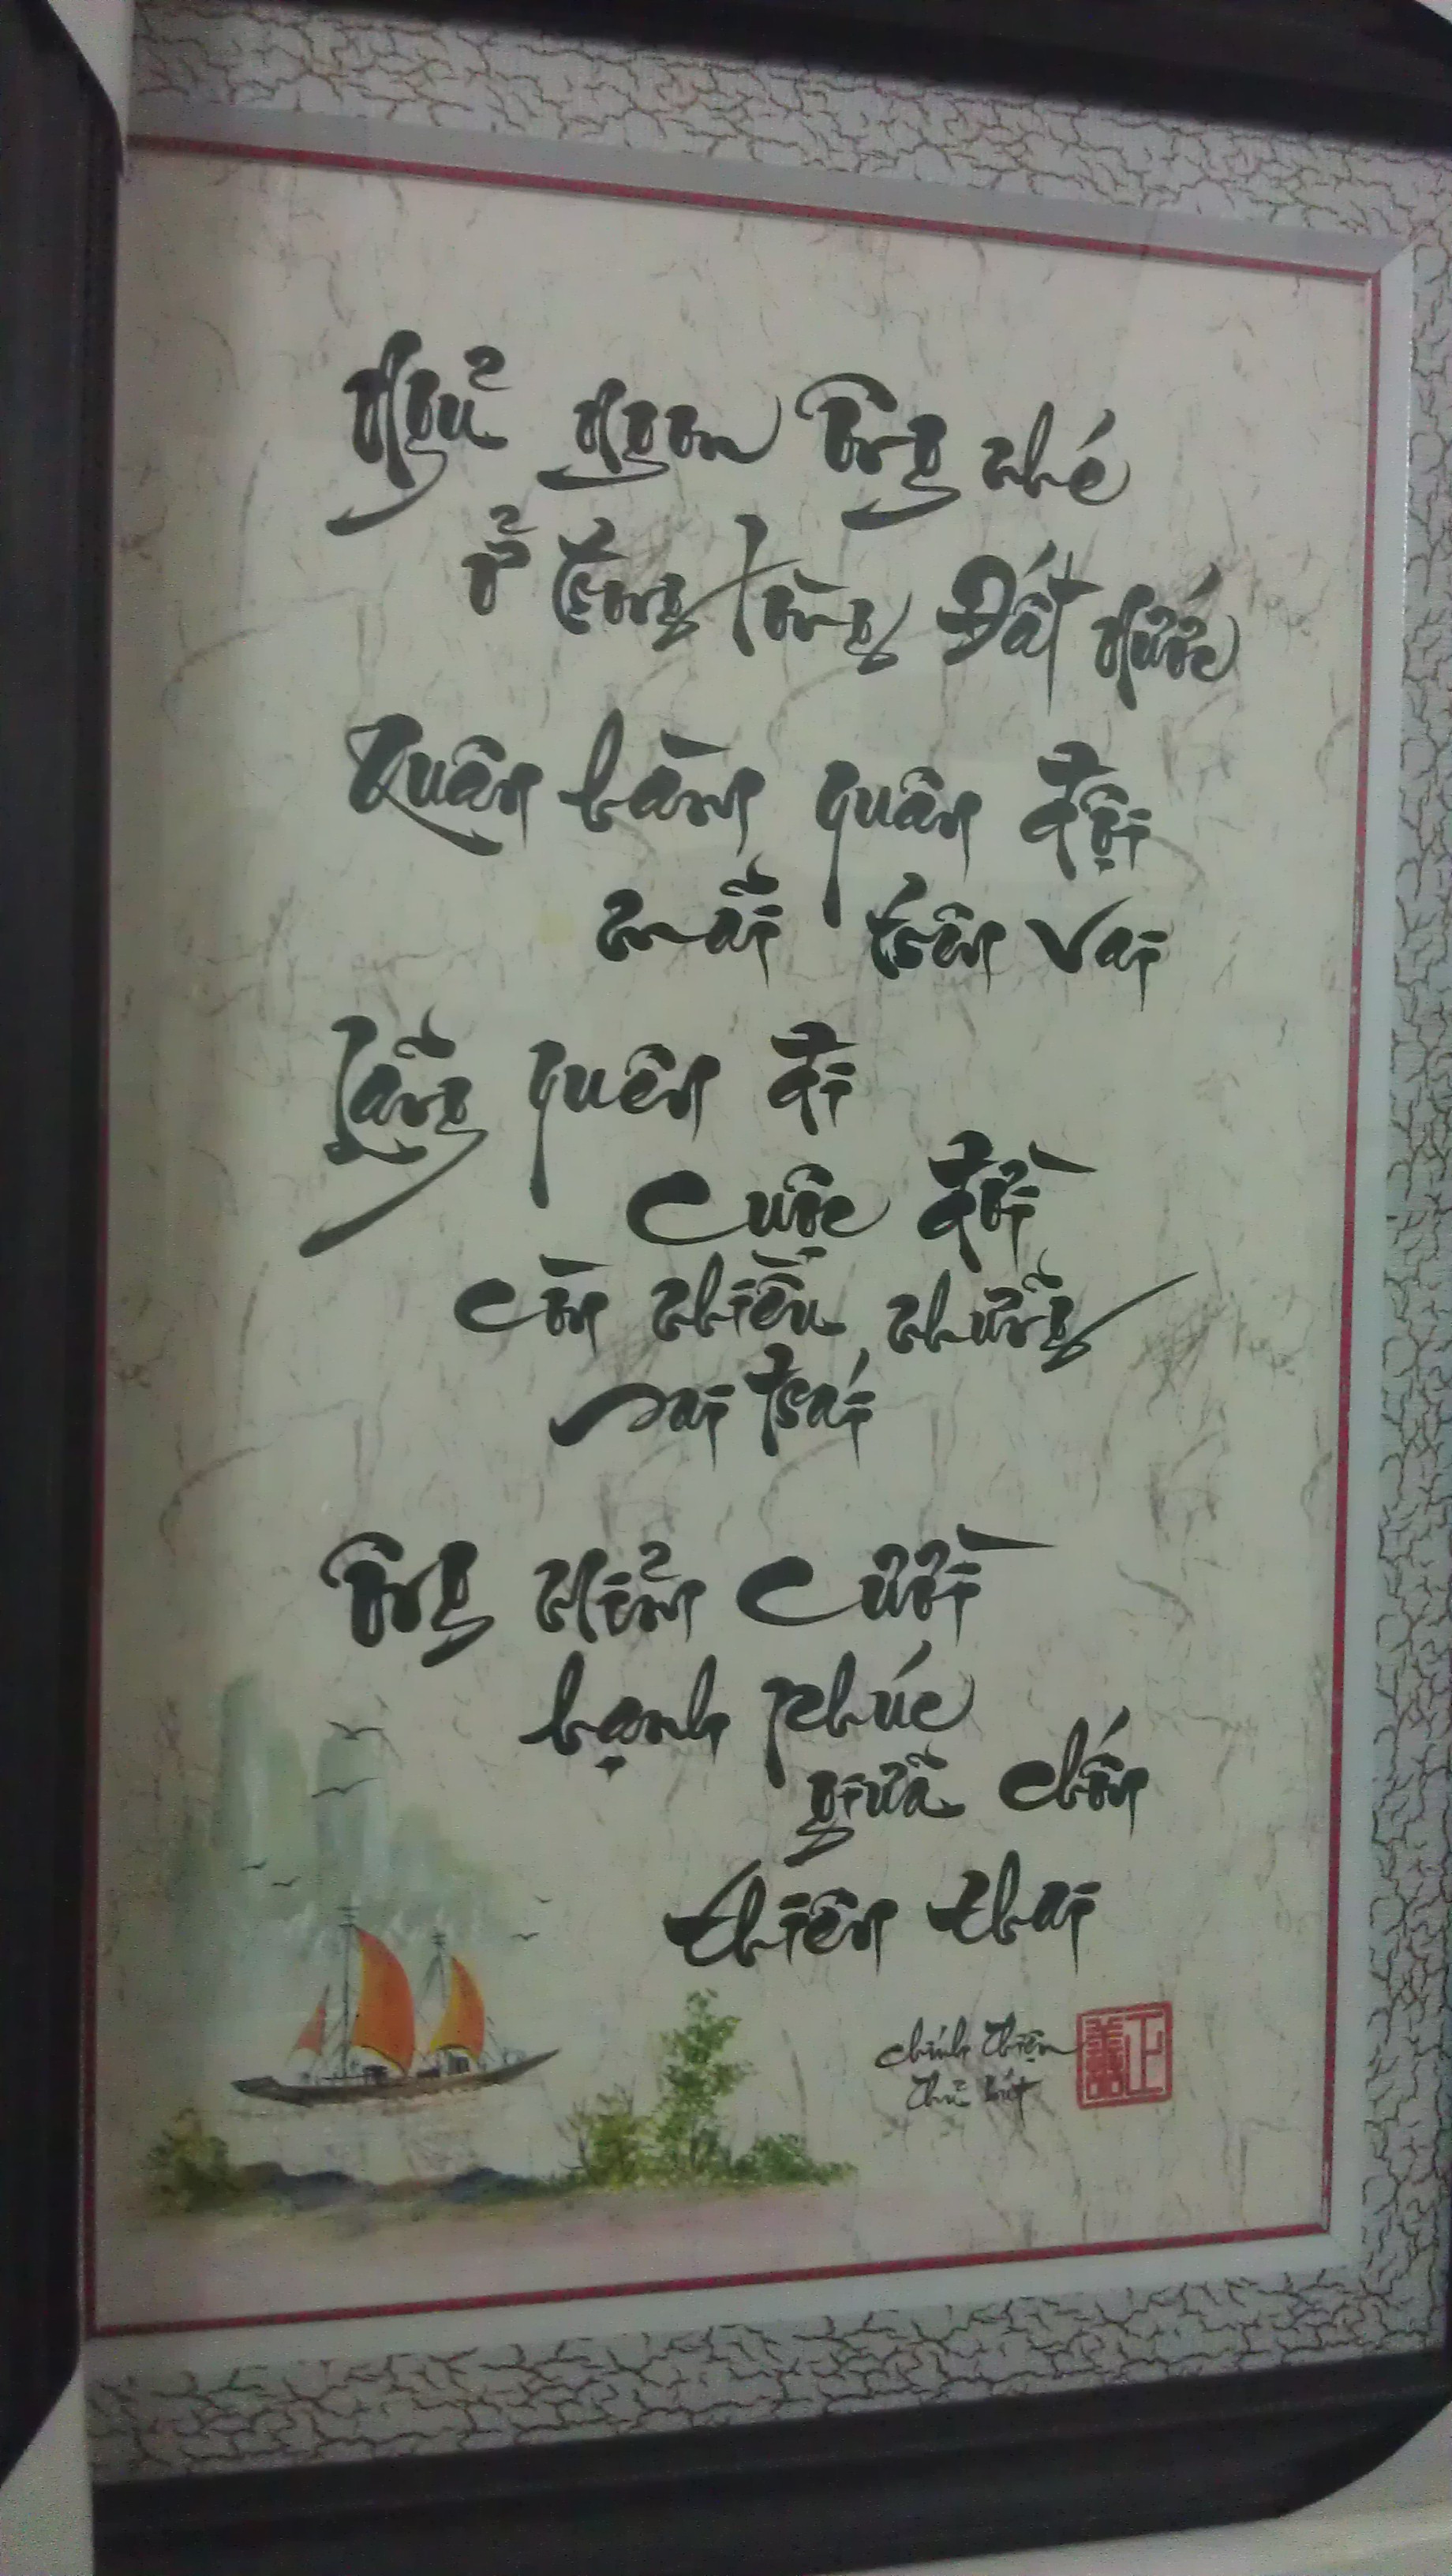 Ngủ ngon Ông nhé
ở trong lòng Đất Nước
Quân hàm quân đội
mãi trên vai
Lãng quên đi
cuộc đời
còn nhiều những
sai trái
Ông mỉm cười
hạnh phúc
giữa chốn
thiên thai
Chính Thiện
Thư bút
正善